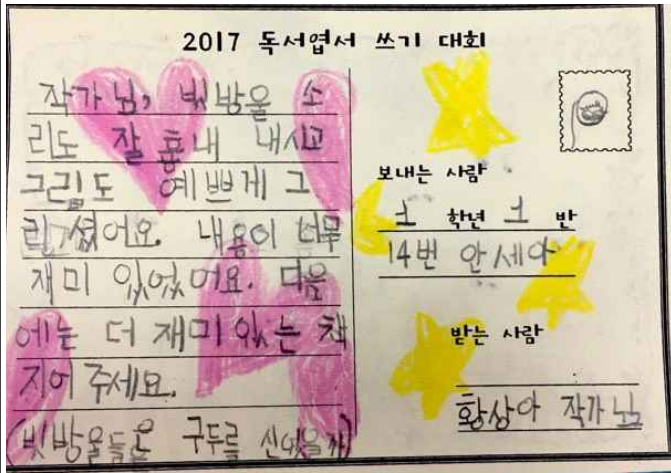 2017 독서엽서 쓰기 대회
작가님, 빗방울 소
리도 잘 흉내 내시고
그림도 예쁘게 그
리셨어요. 내용이 너무
재미 있었어요. 다음
에는 더 재미있는 책
지어 주세요.
(빗방울들은 구두를 신었을까)
보내는 사람
1 학년 1 반
14번 안세아
받는 사람
황상아 작가님